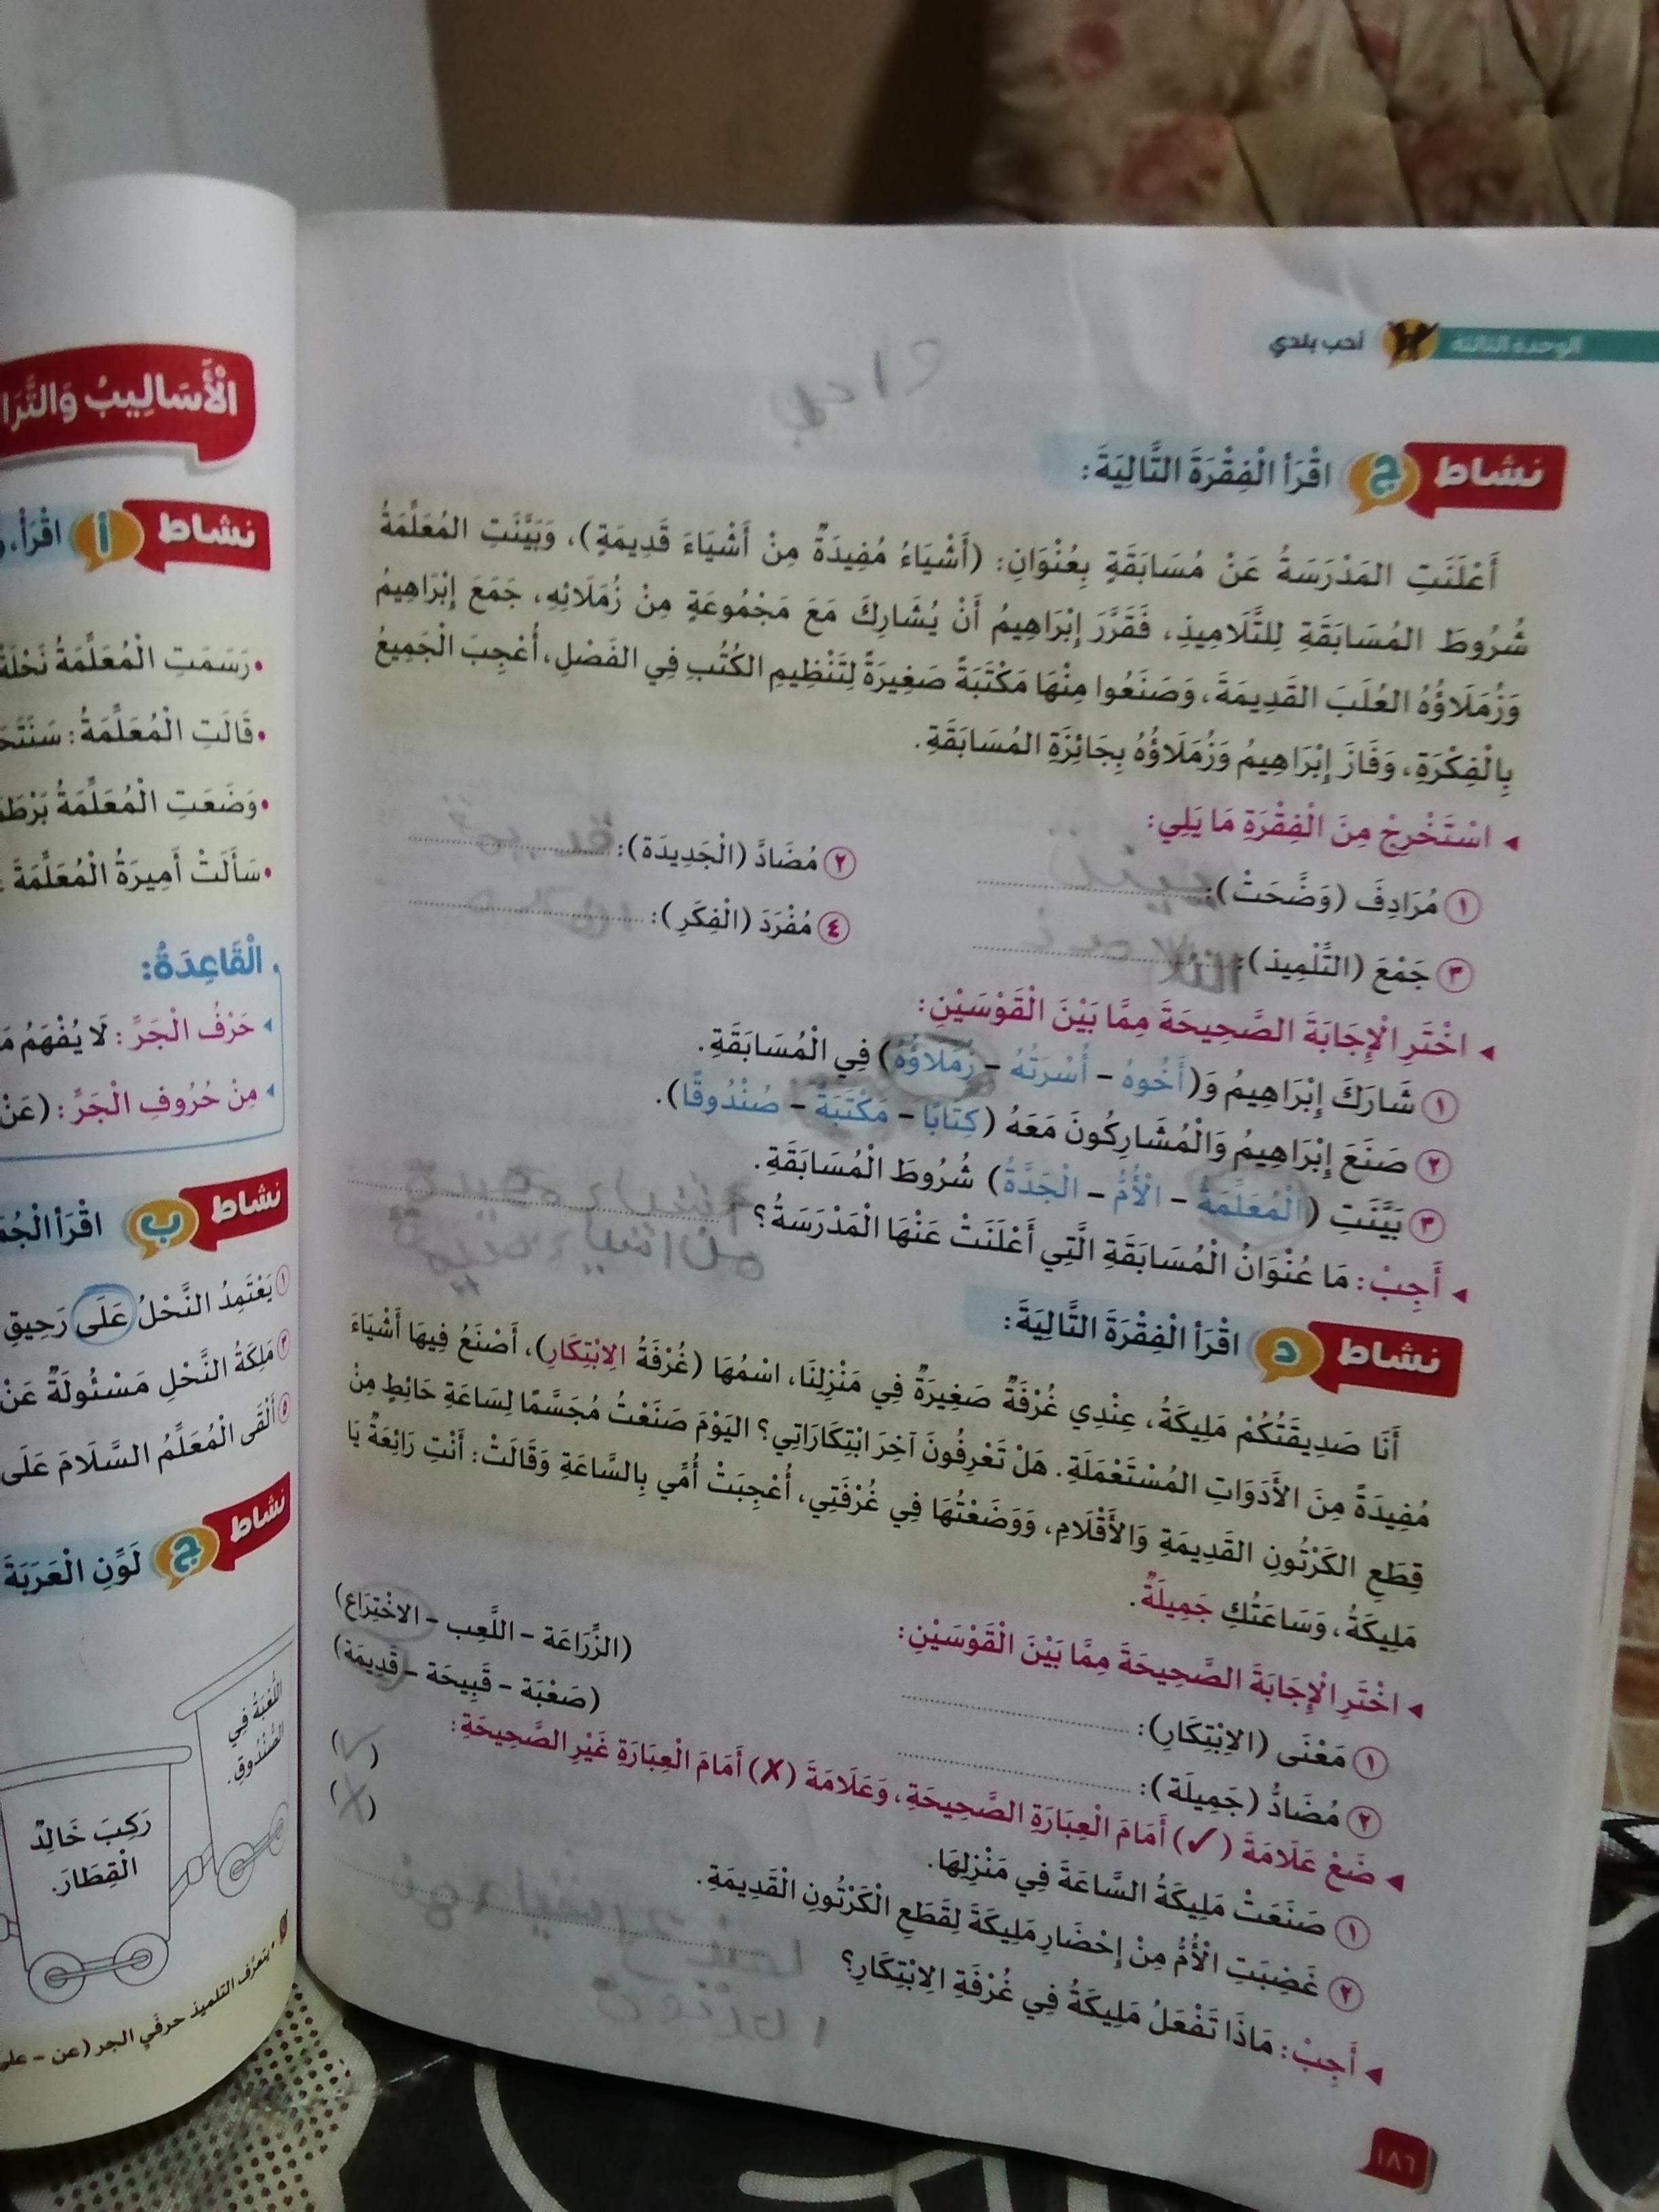 الوحدة الثالثة أحب بلدي
نشاط ج اقْرَأِ الْفِقْرَةَ التَّالِيَةَ:
أَعْلَنَتِ المَدْرَسَةُ عَنْ مُسَابَقَةٍ بِعُنْوَانِ: (أَشْيَاءُ مُفِيدَةٌ مِنْ أَشْيَاءَ قَدِيمَةٍ)، وَبَيَّنَتِ المُعَلِّمَةُ
شُرُوطَ المُسَابَقَةِ لِلتَّلَامِيذِ، فَقَرَّرَ إِبْرَاهِيمُ أَنْ يُشَارِكَ مَعَ مَجْمُوعَةٍ مِنْ زُمَلَائِهِ، جَمَعَ إِبْرَاهِيمُ
وَزُمَلَاؤُهُ العُلَبَ القَدِيمَةَ، وَصَنَعُوا مِنْهَا مَكْتَبَةً صَغِيرَةً لِتَنْظِيمِ الكُتُبِ فِي الفَصْلِ، أُعْجِبَ الْجَمِيعُ
بِالْفِكْرَةِ، وَفَازَ إِبْرَاهِيمُ وَزُمَلَاؤُهُ بِجَائِزَةِ المُسَابَقَةِ.
اسْتَخْرِجْ مِنَ الْفِقْرَةِ مَا يَلِي:
١ مُرَادِفَ (وَضَّحَتْ):
٢ مُضَادَّ (الْجَدِيدَة):
٣ جَمْعَ (التِّلْمِيذ):
٤ مُفْرَدَ (الْفِكَرِ):
اخْتَرِ الْإِجَابَةَ الصَّحِيحَةَ مِمَّا بَيْنَ الْقَوْسَيْنِ:
١ شَارَكَ إِبْرَاهِيمُ وَ(أَخُوهُ - أُسْرَتُهُ - زُمَلَاؤُهُ) فِي الْمُسَابَقَةِ.
٢ صَنَعَ إِبْرَاهِيمُ وَالْمُشَارِكُونَ مَعَهُ (كِتَابًا - مَكْتَبَةً - صُنْدُوقًا).
٣ بَيَّنَتِ (الْمُعَلِّمَةُ - الْأُمُّ - الْجَدَّةُ) شُرُوطَ الْمُسَابَقَةِ.
أَجِبْ: مَا عُنْوَانُ الْمُسَابَقَةِ الَّتِي أَعْلَنَتْ عَنْهَا الْمَدْرَسَةُ؟
نشاط د اقْرَأِ الْفِقْرَةَ التَّالِيَةَ:
أَنَا صَدِيقَتُكُمْ مَلِيكَةُ، عِنْدِي غُرْفَةٌ صَغِيرَةٌ فِي مَنْزِلِنَا، اسْمُهَا (غُرْفَةُ الِابْتِكَارِ)، أَصْنَعُ فِيهَا أَشْيَاءَ
مُفِيدَةً مِنَ الأَدَوَاتِ المُسْتَعْمَلَةِ. هَلْ تَعْرِفُونَ آخِرَ ابْتِكَارَاتِي؟ اليَوْمَ صَنَعْتُ مُجَسَّمًا لِسَاعَةِ حَائِطٍ مِنْ
قِطَعِ الكَرْتُونِ القَدِيمَةِ وَالأَقْلَامِ، وَوَضَعْتُهَا فِي غُرْفَتِي، أُعْجِبَتْ أُمِّي بِالسَّاعَةِ وَقَالَتْ: أَنْتِ رَائِعَةٌ يَا
مَلِيكَةُ، وَسَاعَتُكِ جَمِيلَةٌ.
اخْتَرِ الْإِجَابَةَ الصَّحِيحَةَ مِمَّا بَيْنَ الْقَوْسَيْنِ:
١ مَعْنَى (الِابْتِكَارِ): (الزِّرَاعَة - اللَّعِب - الاخْتِرَاع)
٢ مُضَادُّ (جَمِيلَة): (صَعْبَة - قَبِيحَة - قَدِيمَة)
ضَعْ عَلَامَةَ (✓) أَمَامَ الْعِبَارَةِ الصَّحِيحَةِ، وَعَلَامَةَ (✗) أَمَامَ الْعِبَارَةِ غَيْرِ الصَّحِيحَةِ:
١ صَنَعَتْ مَلِيكَةُ السَّاعَةَ فِي مَنْزِلِهَا. (✓)
٢ غَضِبَتِ الْأُمُّ مِنْ إِحْضَارِ مَلِيكَةَ لِقَطَعِ الْكَرْتُونِ الْقَدِيمَةِ. (✗)
أَجِبْ: مَاذَا تَفْعَلُ مَلِيكَةُ فِي غُرْفَةِ الِابْتِكَارِ؟
١٨٦
الْأَسَالِيبُ
نشاط أ اقْرَأْ،
رَسَمَتِ الْمُعَلِّمَةُ نَحْلَةً
قَالَتِ الْمُعَلِّمَةُ:
وَضَعَتِ الْمُعَلِّمَةُ
سَأَلَتْ أَمِيرَةُ الْمُعَلِّمَةَ
الْقَاعِدَةُ:
حَرْفُ الْجَرِّ: لَا يُفْهَمُ
مِنْ حُرُوفِ الْجَرِّ: (عَنْ
نشاط ب اقْرَأِ
١ يَعْتَمِدُ النَّحْلُ عَلَى رَحِيقِ
٣ مَلِكَةُ النَّحْلِ مَسْئُولَةٌ عَنْ
٥ أَلْقَى الْمُعَلِّمُ السَّلَامَ عَلَى
نشاط ج لَوِّنِ الْعَرَبَةَ
اللُّعْبَةُ فِي
الصُّنْدُوقِ.
رَكِبَ خَالِدٌ
الْقِطَارَ.
يتعرف التلميذ حرفي الجر (عن -